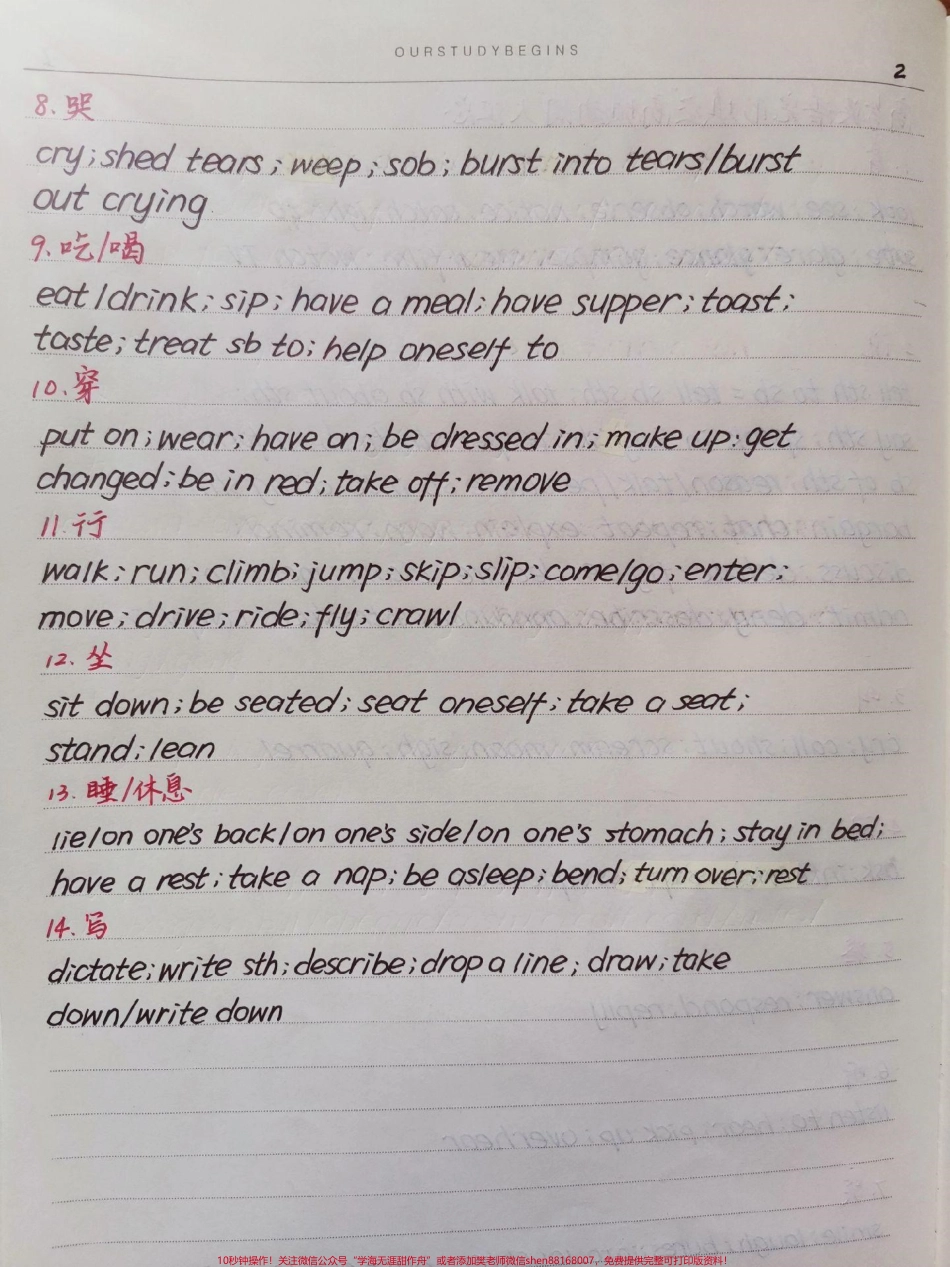 OURSTUDYBEGINS
2
8.哭
cry; shed tears; weep; sob; burst into tears/burst
out crying
9.吃/喝
eat/drink; sip; have a meal; have supper; toast;
taste; treat sb to; help oneself to
10.穿
put on; wear; have on; be dressed in; make up: get
changed; be in red; take off; remove
11.行
walk; run; climb; jump; skip; slip; come/go; enter;
move; drive; ride; fly; crawl
12.坐
sit down; be seated; seat oneself; take a seat;
stand; lean
13.睡/休息
lie/on one's back/on one's side/on one's stomach; stay in bed;
have a rest; take a nap; be asleep; bend; turn over; rest
14.写
dictate; write sth; describe; drop a line; draw; take
down/write down
10秒钟操作！关注微信公众号“学海无涯甜作舟”或者添加樊老师微信shen88168007，免费提供完整可打印版资料！